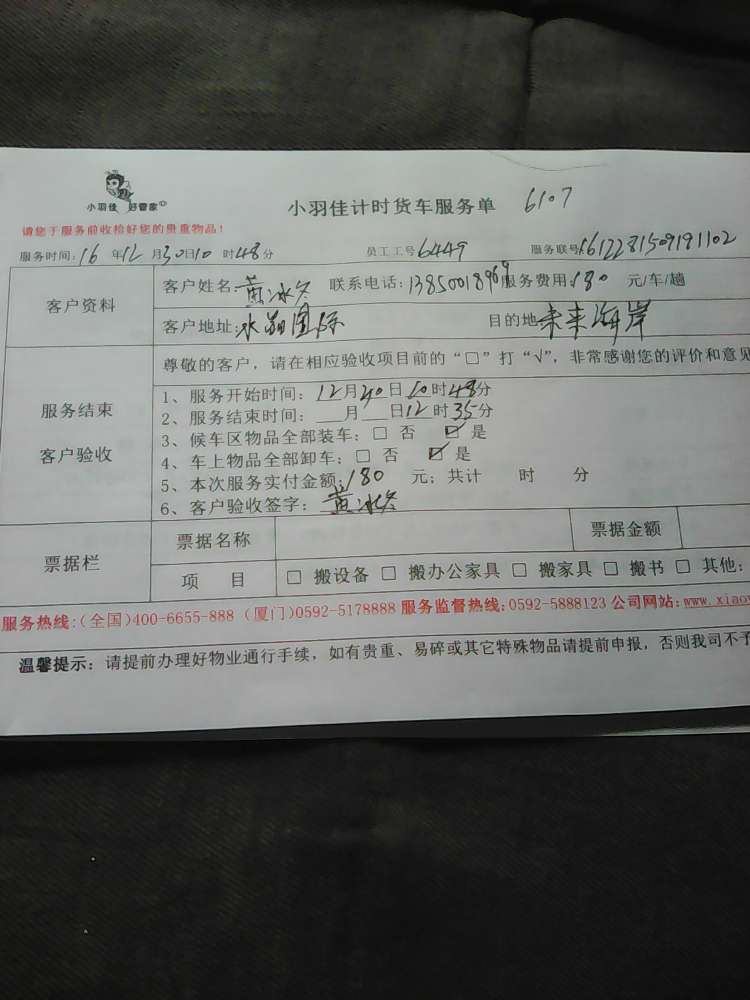 小羽佳 好管家
小羽佳计时货车服务单 6107
请您于服务前收检好您的贵重物品！
服务时间：16年12月30日10时48分 员工工号6449 服务联号1612281509191102
客户资料
客户姓名：黄冰 联系电话：13850018969 服务费用：180 元/车/趟
客户地址：水晶国际 目的地 未来海岸
服务结束
客户验收
尊敬的客户，请在相应验收项目前的“□”打“√”，非常感谢您的评价和意见
1、服务开始时间：12月30日10时48分
2、服务结束时间：___月___日12时35分
3、候车区物品全部装车：□ 否 ☑ 是
4、车上物品全部卸车：□ 否 ☑ 是
5、本次服务实付金额：180 元；共计 时 分
6、客户验收签字：黄冰
票据栏
票据名称 票据金额
项 目 □ 搬设备 □ 搬办公家具 □ 搬家具 □ 搬书 □ 其他：
服务热线：(全国)400-6655-888 (厦门)0592-5178888 服务监督热线：0592-5888123 公司网站：www.xiao
温馨提示：请提前办理好物业通行手续，如有贵重、易碎或其它特殊物品请提前申报，否则我司不予